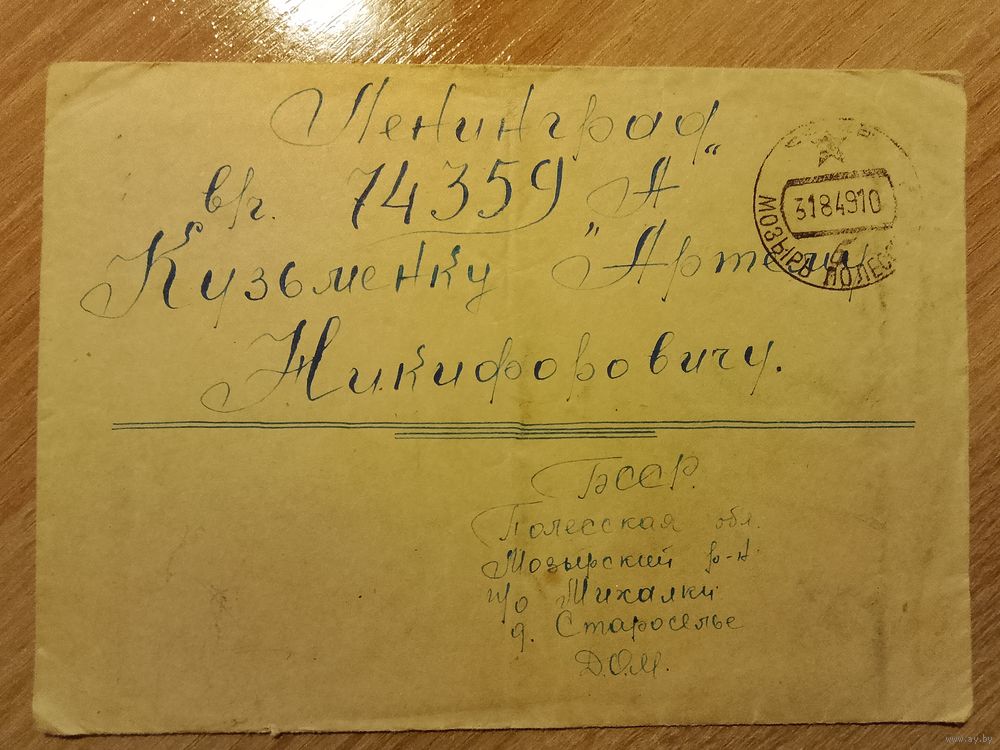 Ленинград
в/ч. 74359 „А"
Кузьменку Артему
Никифоровичу.
МОЗЫРЬ ПОЛЕС
3184910
БССР.
Полесская обл.
Мозырский р-н.
п/о Михалки
д. Староселье
Д.О.М.
www.ay.by